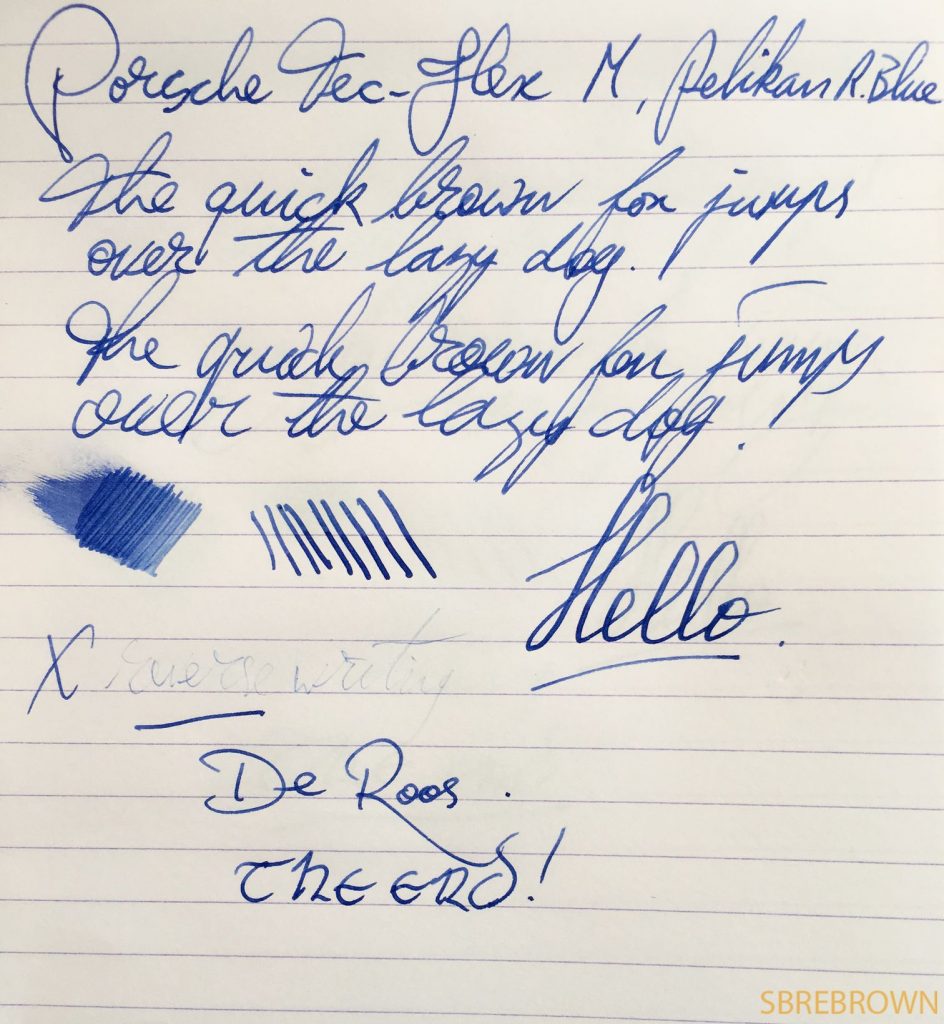 Porsche Tec-Flex M, Pelikan R.Blue
The quick brown fox jumps
over the lazy dog.
The quick brown fox jumps
over the lazy dog.
Hello.
X Reverse writing
De Roos.
THE END!
SBREBROWN